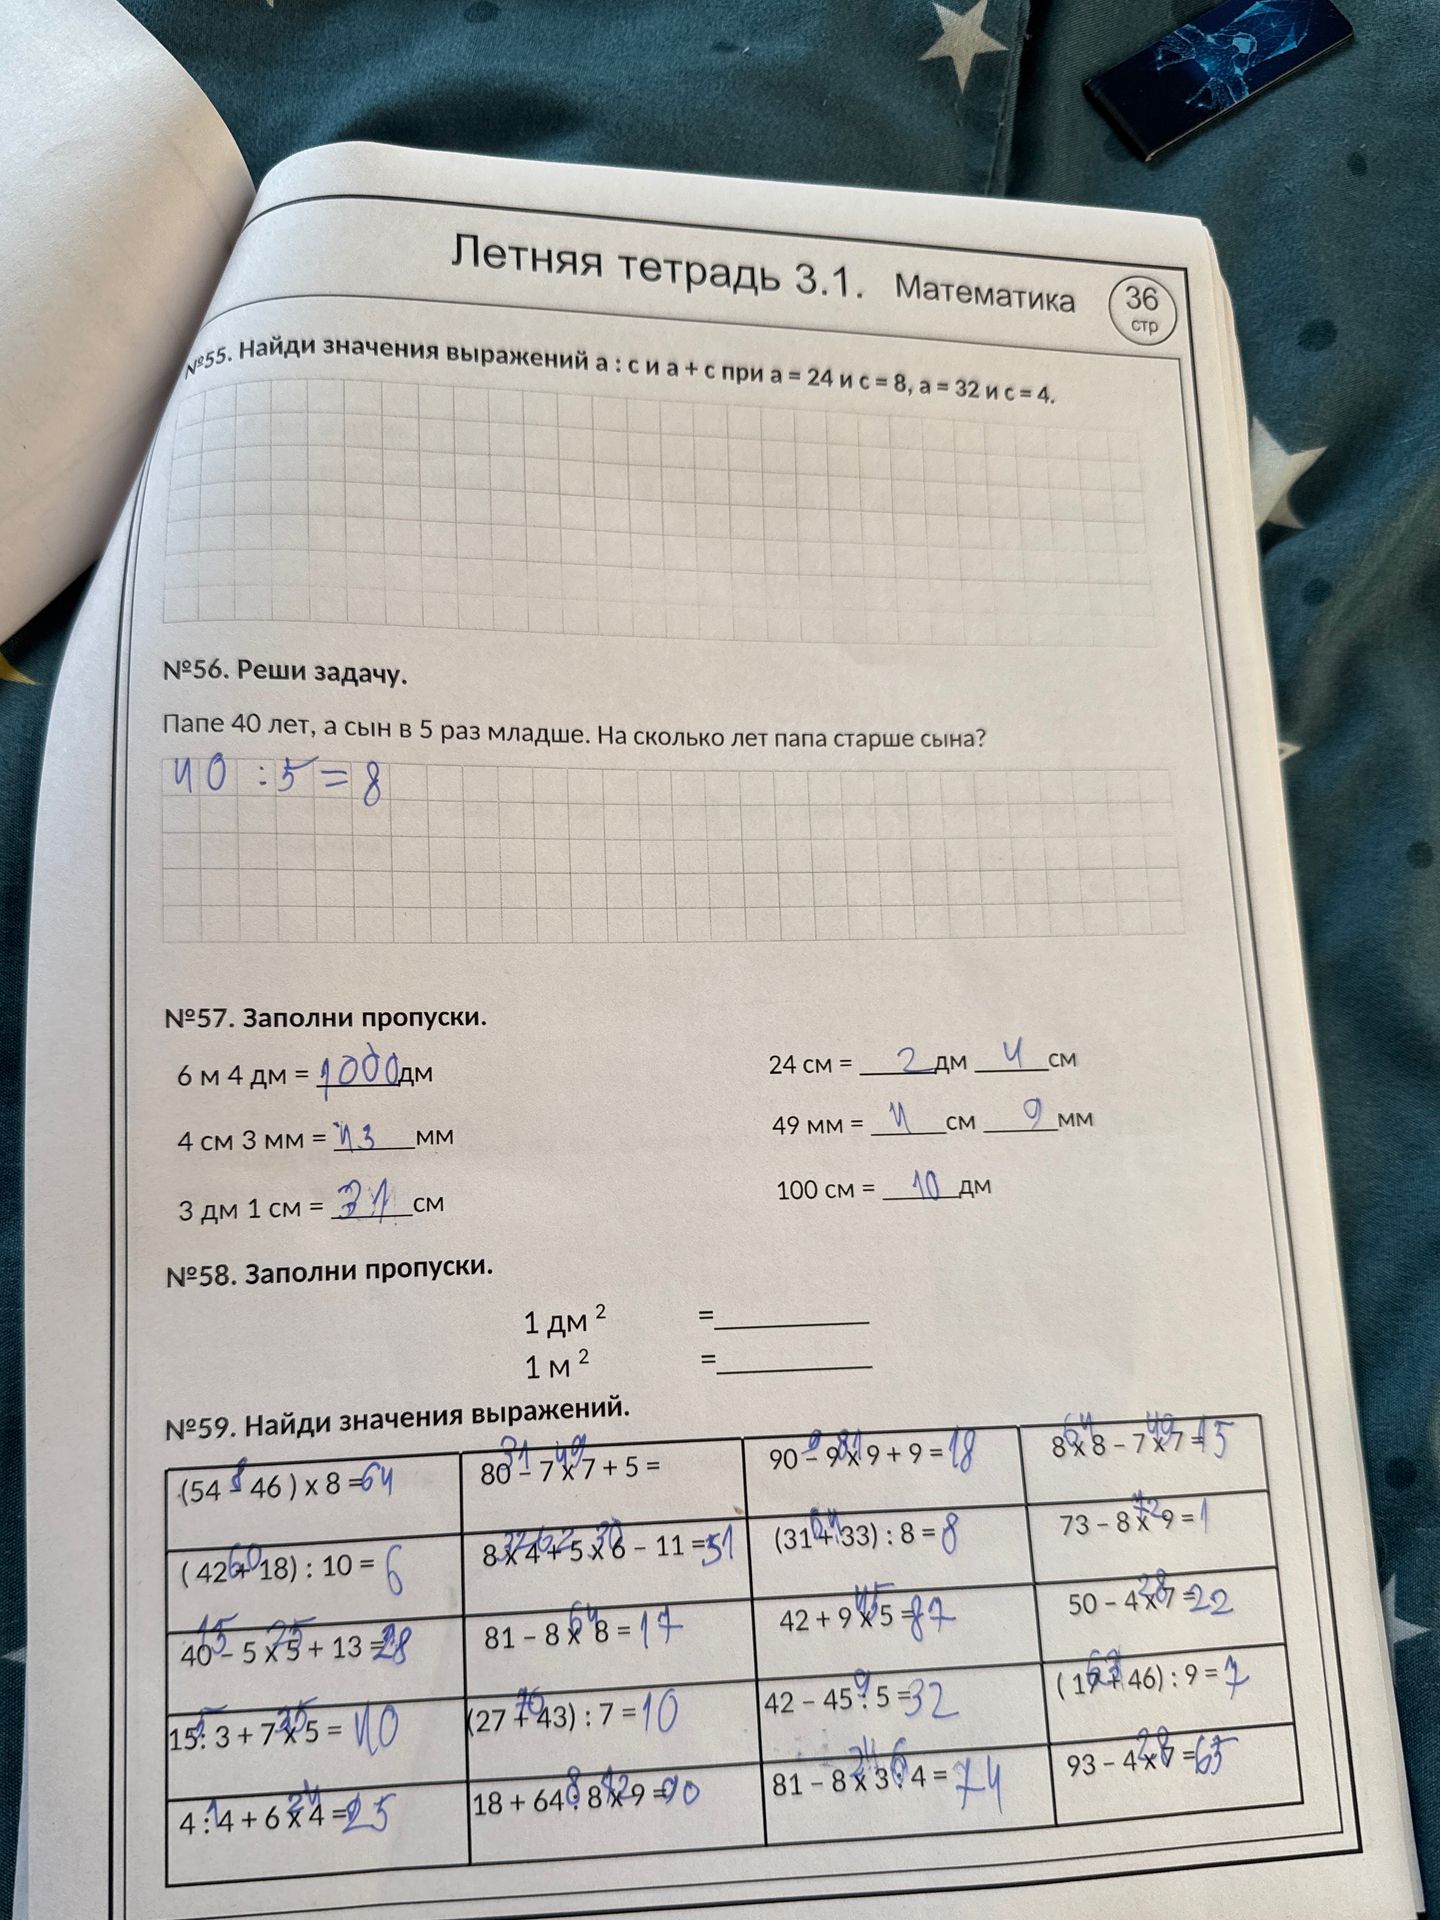 Летняя тетрадь 3.1. Математика 36 стр
№55. Найди значения выражений а : с и а + с при а = 24 и с = 8, а = 32 и с = 4.
№56. Реши задачу.
Папе 40 лет, а сын в 5 раз младше. На сколько лет папа старше сына?
40 : 5 = 8
№57. Заполни пропуски.
6 м 4 дм = 1000 дм
24 см = 2 дм 4 см
4 см 3 мм = 43 мм
49 мм = 4 см 9 мм
3 дм 1 см = 31 см
100 см = 10 дм
№58. Заполни пропуски.
1 дм ² =
1 м ² =
№59. Найди значения выражений.
8
(54 – 46 ) х 8 = 64
31 49
80 – 7 х 7 + 5 =
9 81
90 – 9 х 9 + 9 = 18
64 49
8 х 8 – 7 х 7 = 15
60
( 42 + 18) : 10 = 6
32 62 30
8 х 4 + 5 х 6 – 11 = 51
64
(31 + 33) : 8 = 8
72
73 – 8 х 9 = 1
15 25
40 – 5 х 5 + 13 = 28
64
81 – 8 х 8 = 17
45
42 + 9 х 5 = 87
28
50 – 4 х 7 = 22
5 35
15 : 3 + 7 х 5 = 40
70
(27 + 43) : 7 = 10
9
42 – 45 : 5 = 32
63
( 17 + 46) : 9 = 7
1 24
4 : 4 + 6 х 4 = 25
8 72
18 + 64 : 8 х 9 = 90
24 6
81 – 8 х 3 : 4 = 74
28
93 – 4 х 7 = 65